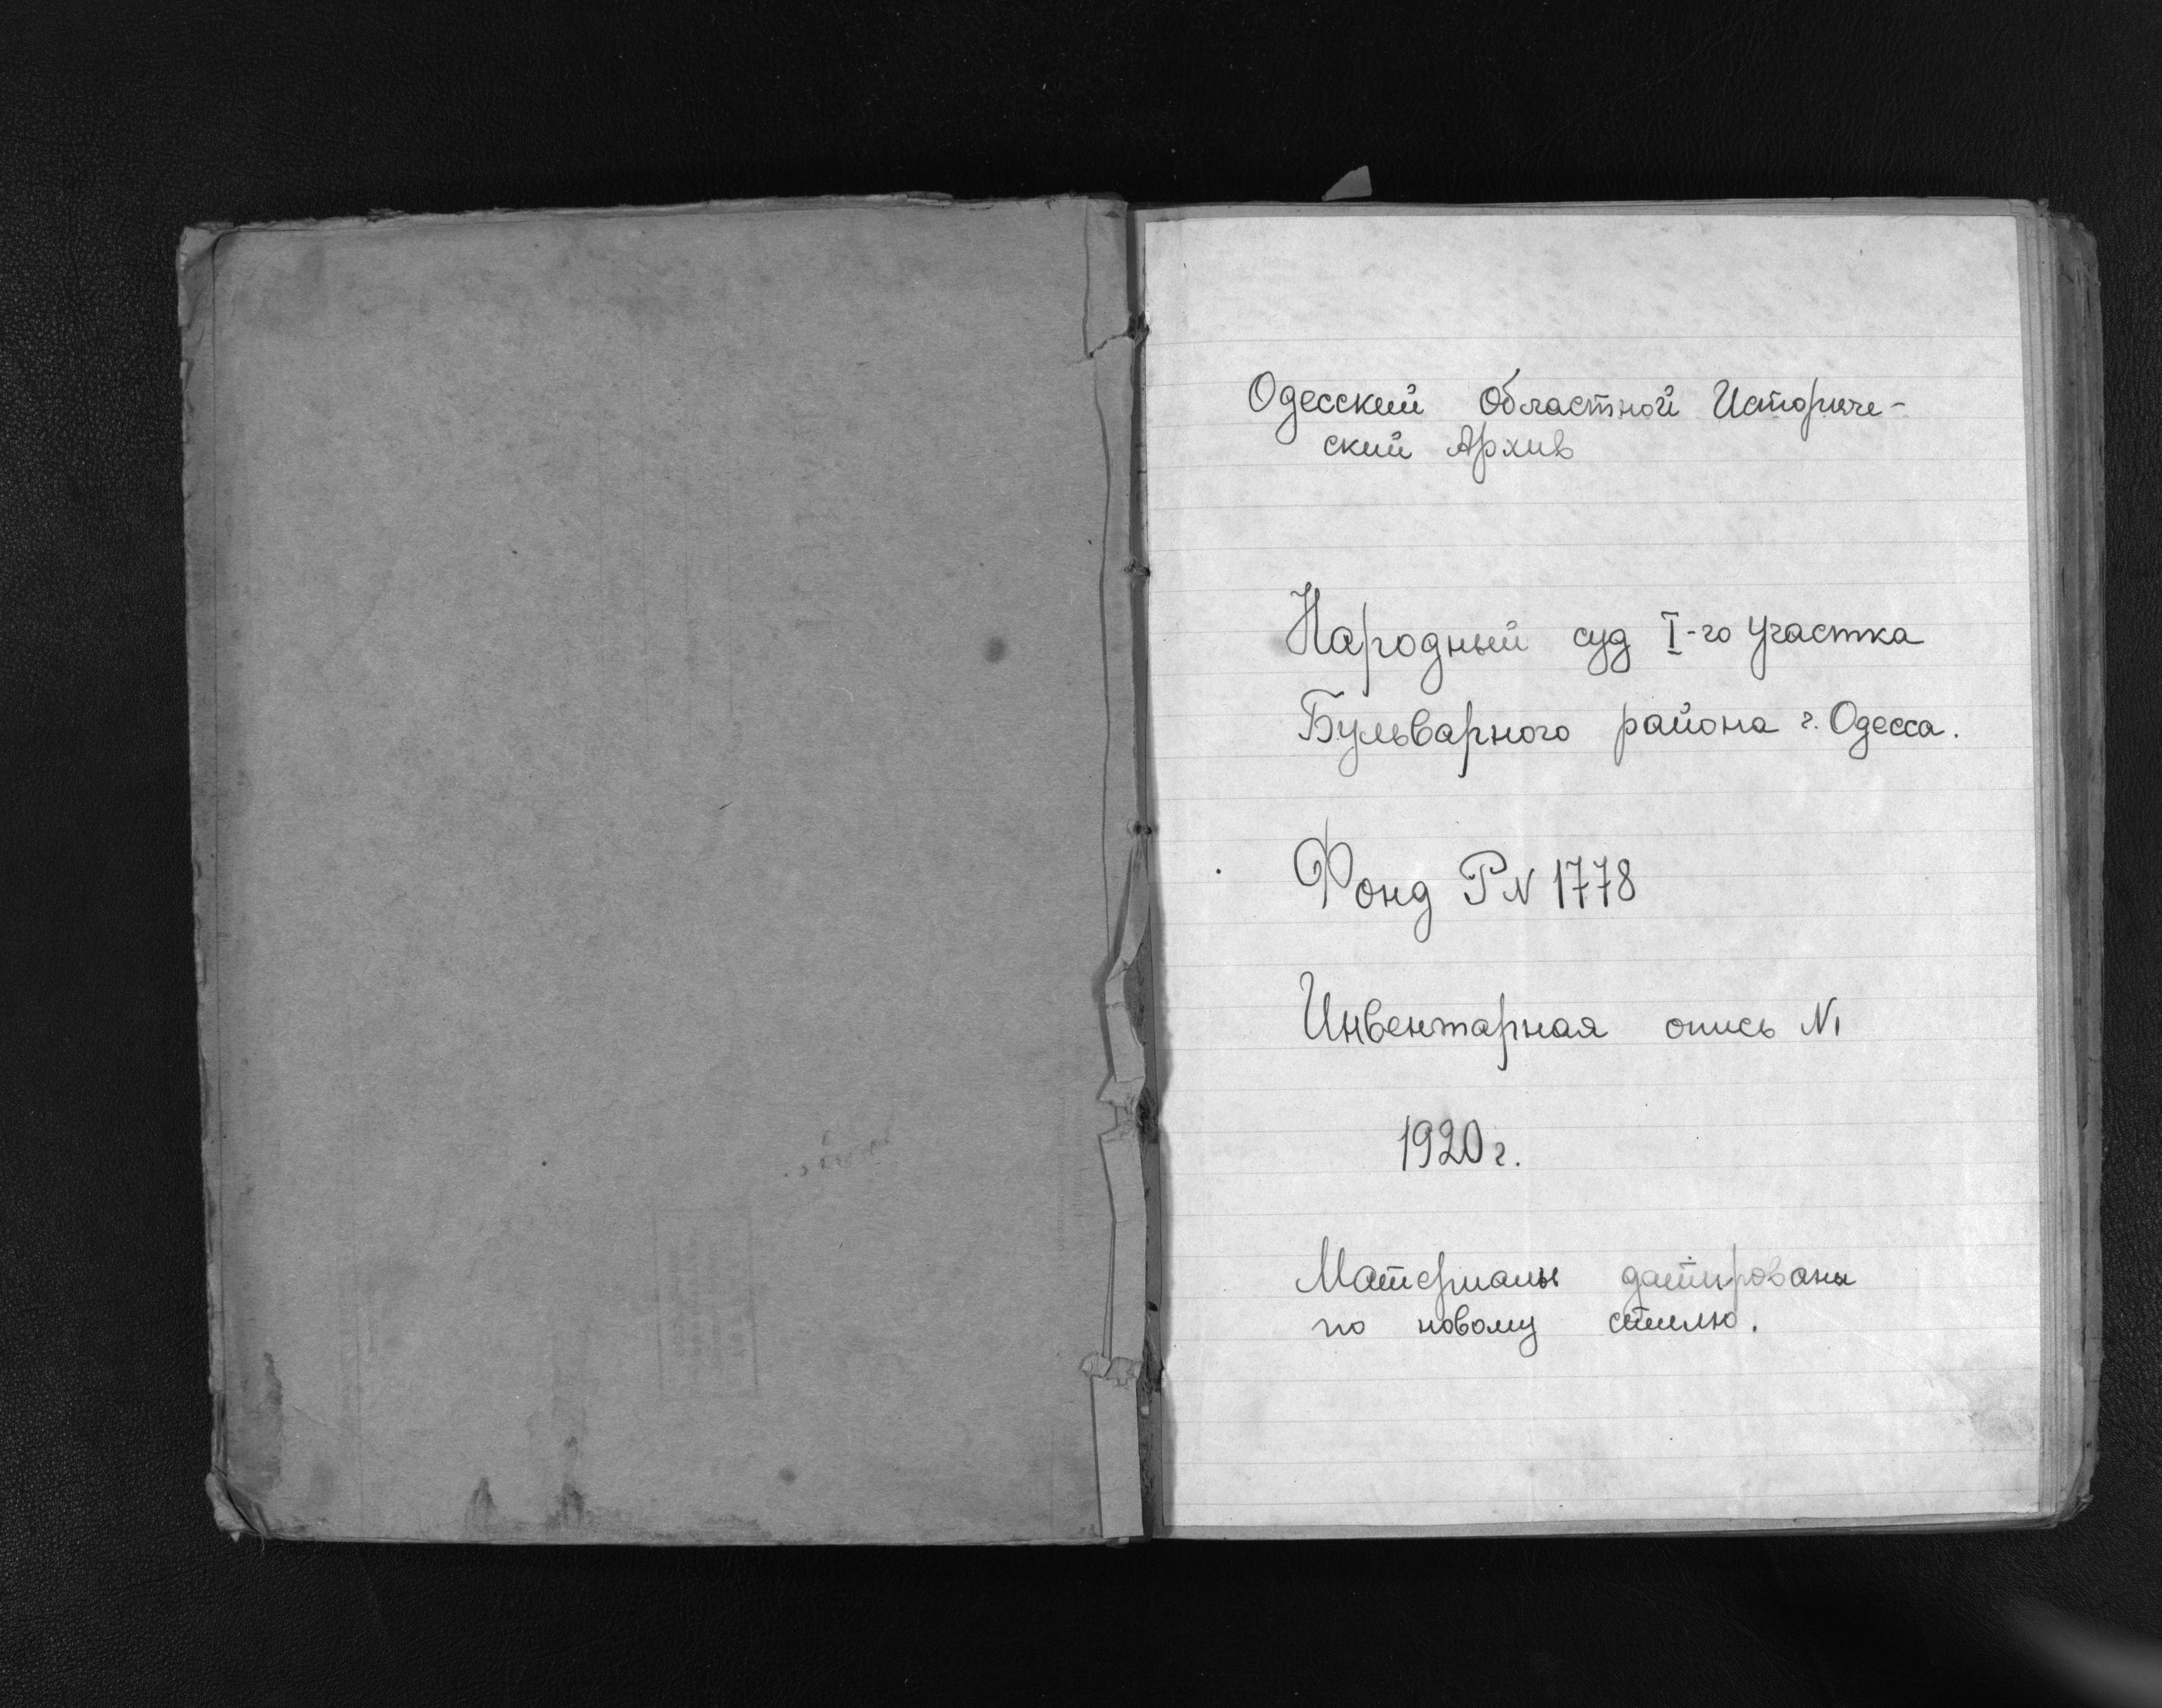 Одесский Областной Историче-
ский Архив
Народный суд I-го участка
Бульварного района г. Одесса.
Фонд Р N 1778
Инвентарная опись N1
1920 г.
Материалы датированы
по новому стилю.